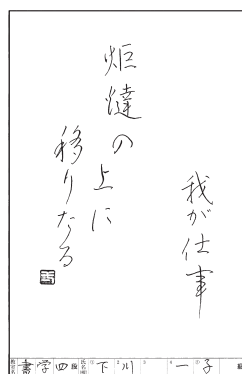 我が仕事
炬燵の上に
移りたる
書学 四段 下川 一子